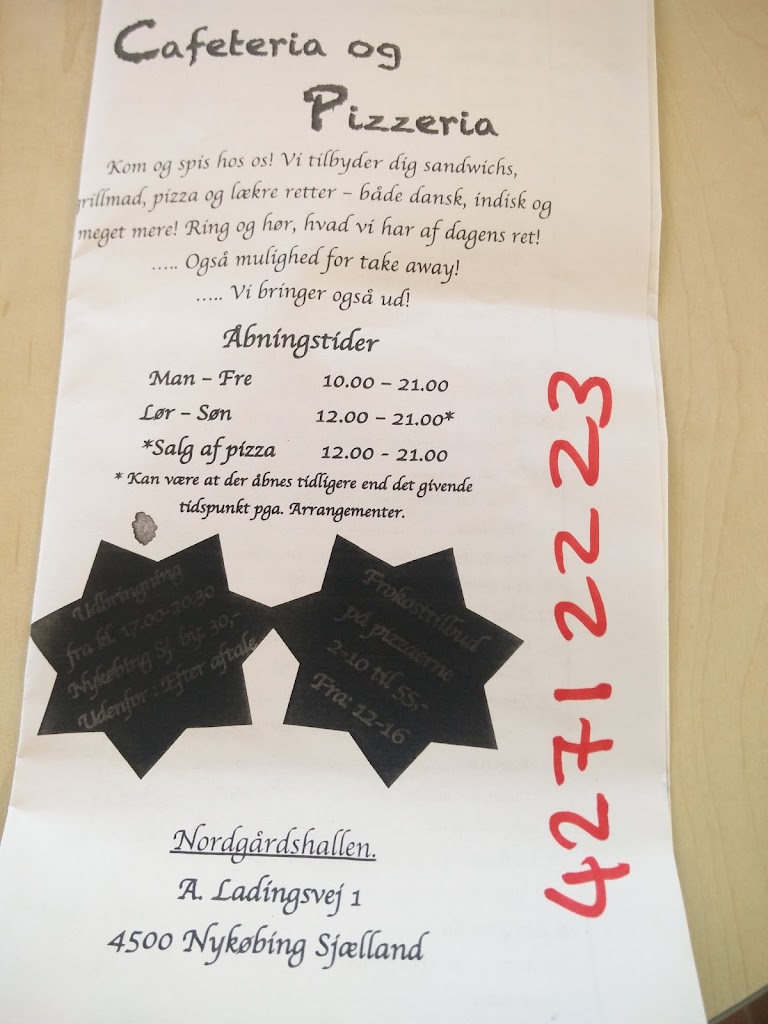 Cafeteria og
Pizzeria
Kom og spis hos os! Vi tilbyder dig sandwichs,
grillmad, pizza og lækre retter – både dansk, indisk og
meget mere! Ring og hør, hvad vi har af dagens ret!
….. Også mulighed for take away!
….. Vi bringer også ud!
Åbningstider
Man – Fre 10.00 – 21.00
Lør – Søn 12.00 – 21.00*
*Salg af pizza 12.00 - 21.00
* Kan være at der åbnes tidligere end det givende
tidspunkt pga. Arrangementer.
Udbringning
fra kl. 17.00-20.30
Nykøbing Sj. by: 30,-
Udenfor : Efter aftale
Frokosttilbud
på pizzaerne
2-10 til 55,-
Fra: 12-16
Nordgårdshallen.
A. Ladingsvej 1
4500 Nykøbing Sjælland
4271 2223